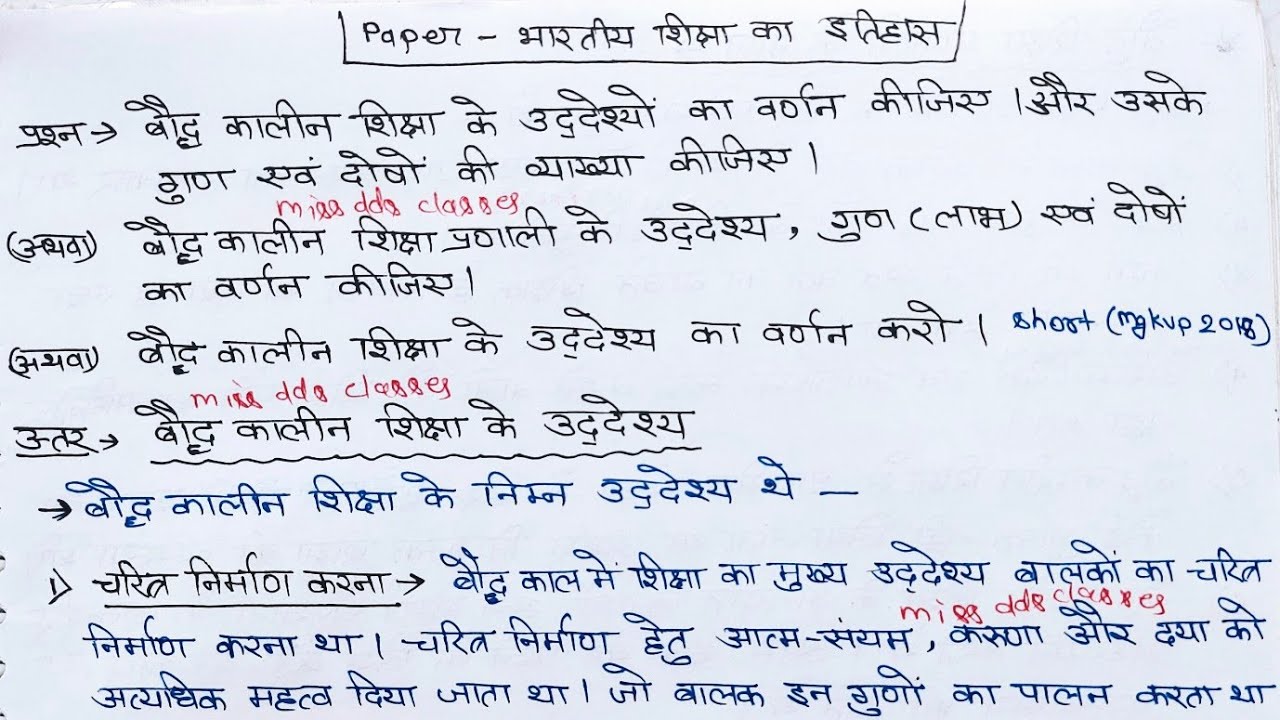 Paper - भारतीय शिक्षा का इतिहास
प्रश्न → बौद्ध कालीन शिक्षा के उद्देश्यों का वर्णन कीजिए । और उसके
गुण एवं दोषों की व्याख्या कीजिए ।
miss dds classes
(अथवा) बौद्ध कालीन शिक्षा प्रणाली के उद्देश्य , गुण (लाभ) एवं दोषों
का वर्णन कीजिए ।
(अथवा) बौद्ध कालीन शिक्षा के उद्देश्य का वर्णन करो । short (mgkvp 2018)
miss dds classes
उत्तर → बौद्ध कालीन शिक्षा के उद्देश्य
→ बौद्ध कालीन शिक्षा के निम्न उद्देश्य थे -
1) चरित्र निर्माण करना → बौद्ध काल में शिक्षा का मुख्य उद्देश्य बालकों का चरित्र
miss dds classes
निर्माण करना था । चरित्र निर्माण हेतु आत्म-संयम , करुणा और दया को
अत्यधिक महत्व दिया जाता था । जो बालक इन गुणों का पालन करता था